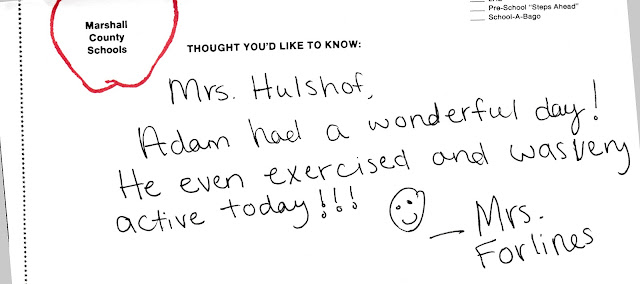 Marshall
County
Schools
Pre-School "Steps Ahead"
School-A-Bago
THOUGHT YOU'D LIKE TO KNOW:
Mrs. Hulshof,
Adam had a wonderful day!
He even exercised and was very
active today!!!
— Mrs.
Forlines